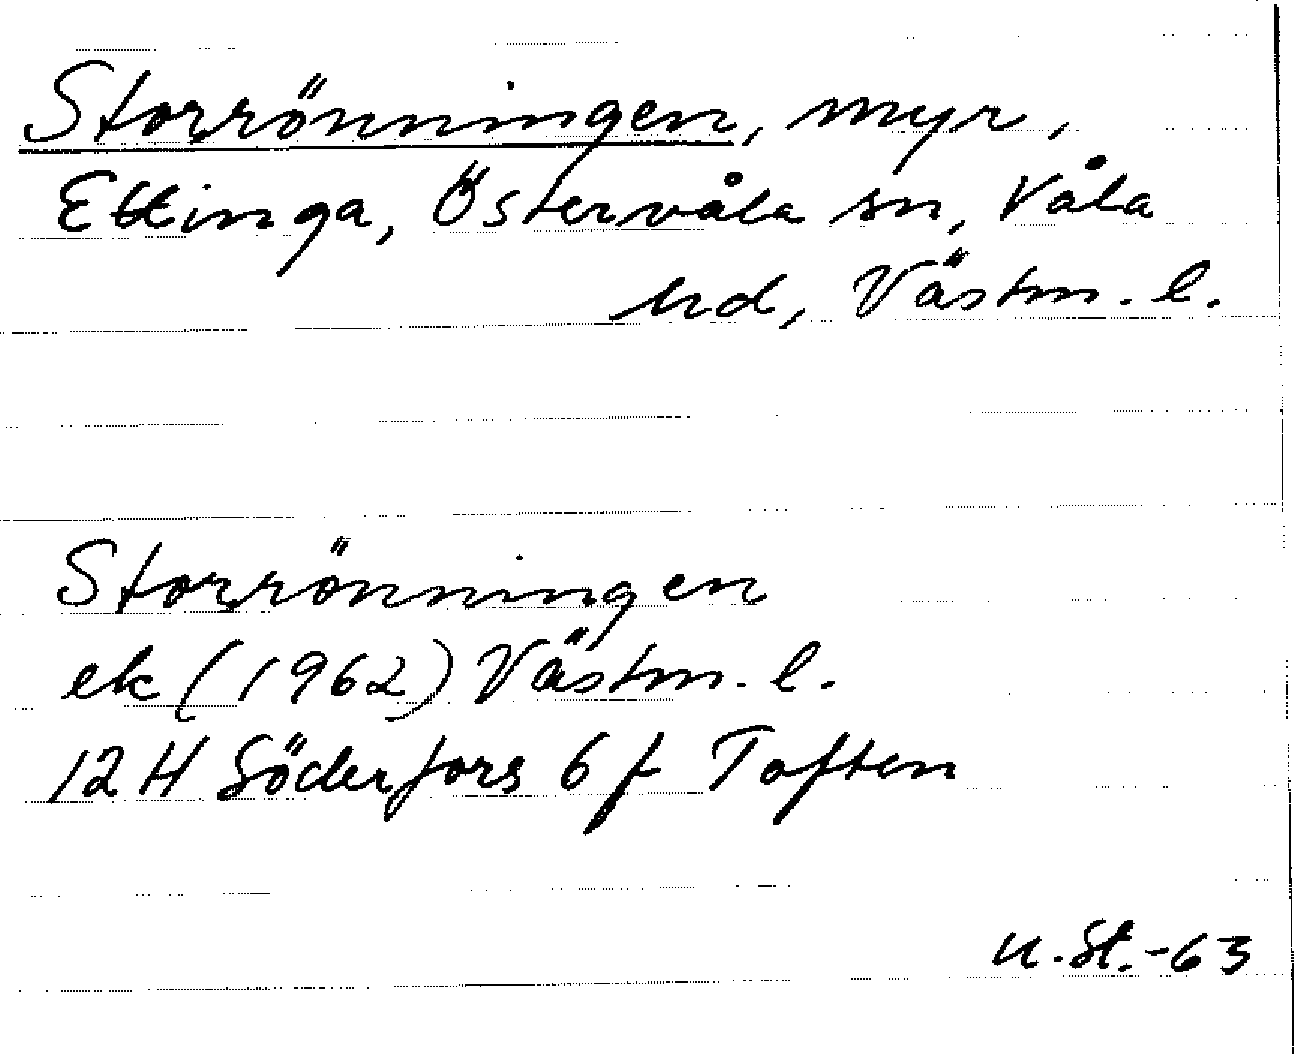 Storrönningen, myr,
Ettinga, Östervåla sn, Våla
hd, Västm. l.
Storrönningen
ek (1962) Västm. l.
12 H Söderfors 6 f Toften
U. St. -63